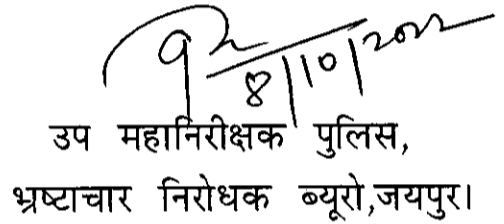 8/10/2022
उप महानिरीक्षक पुलिस,
भ्रष्टाचार निरोधक ब्यूरो,जयपुर।